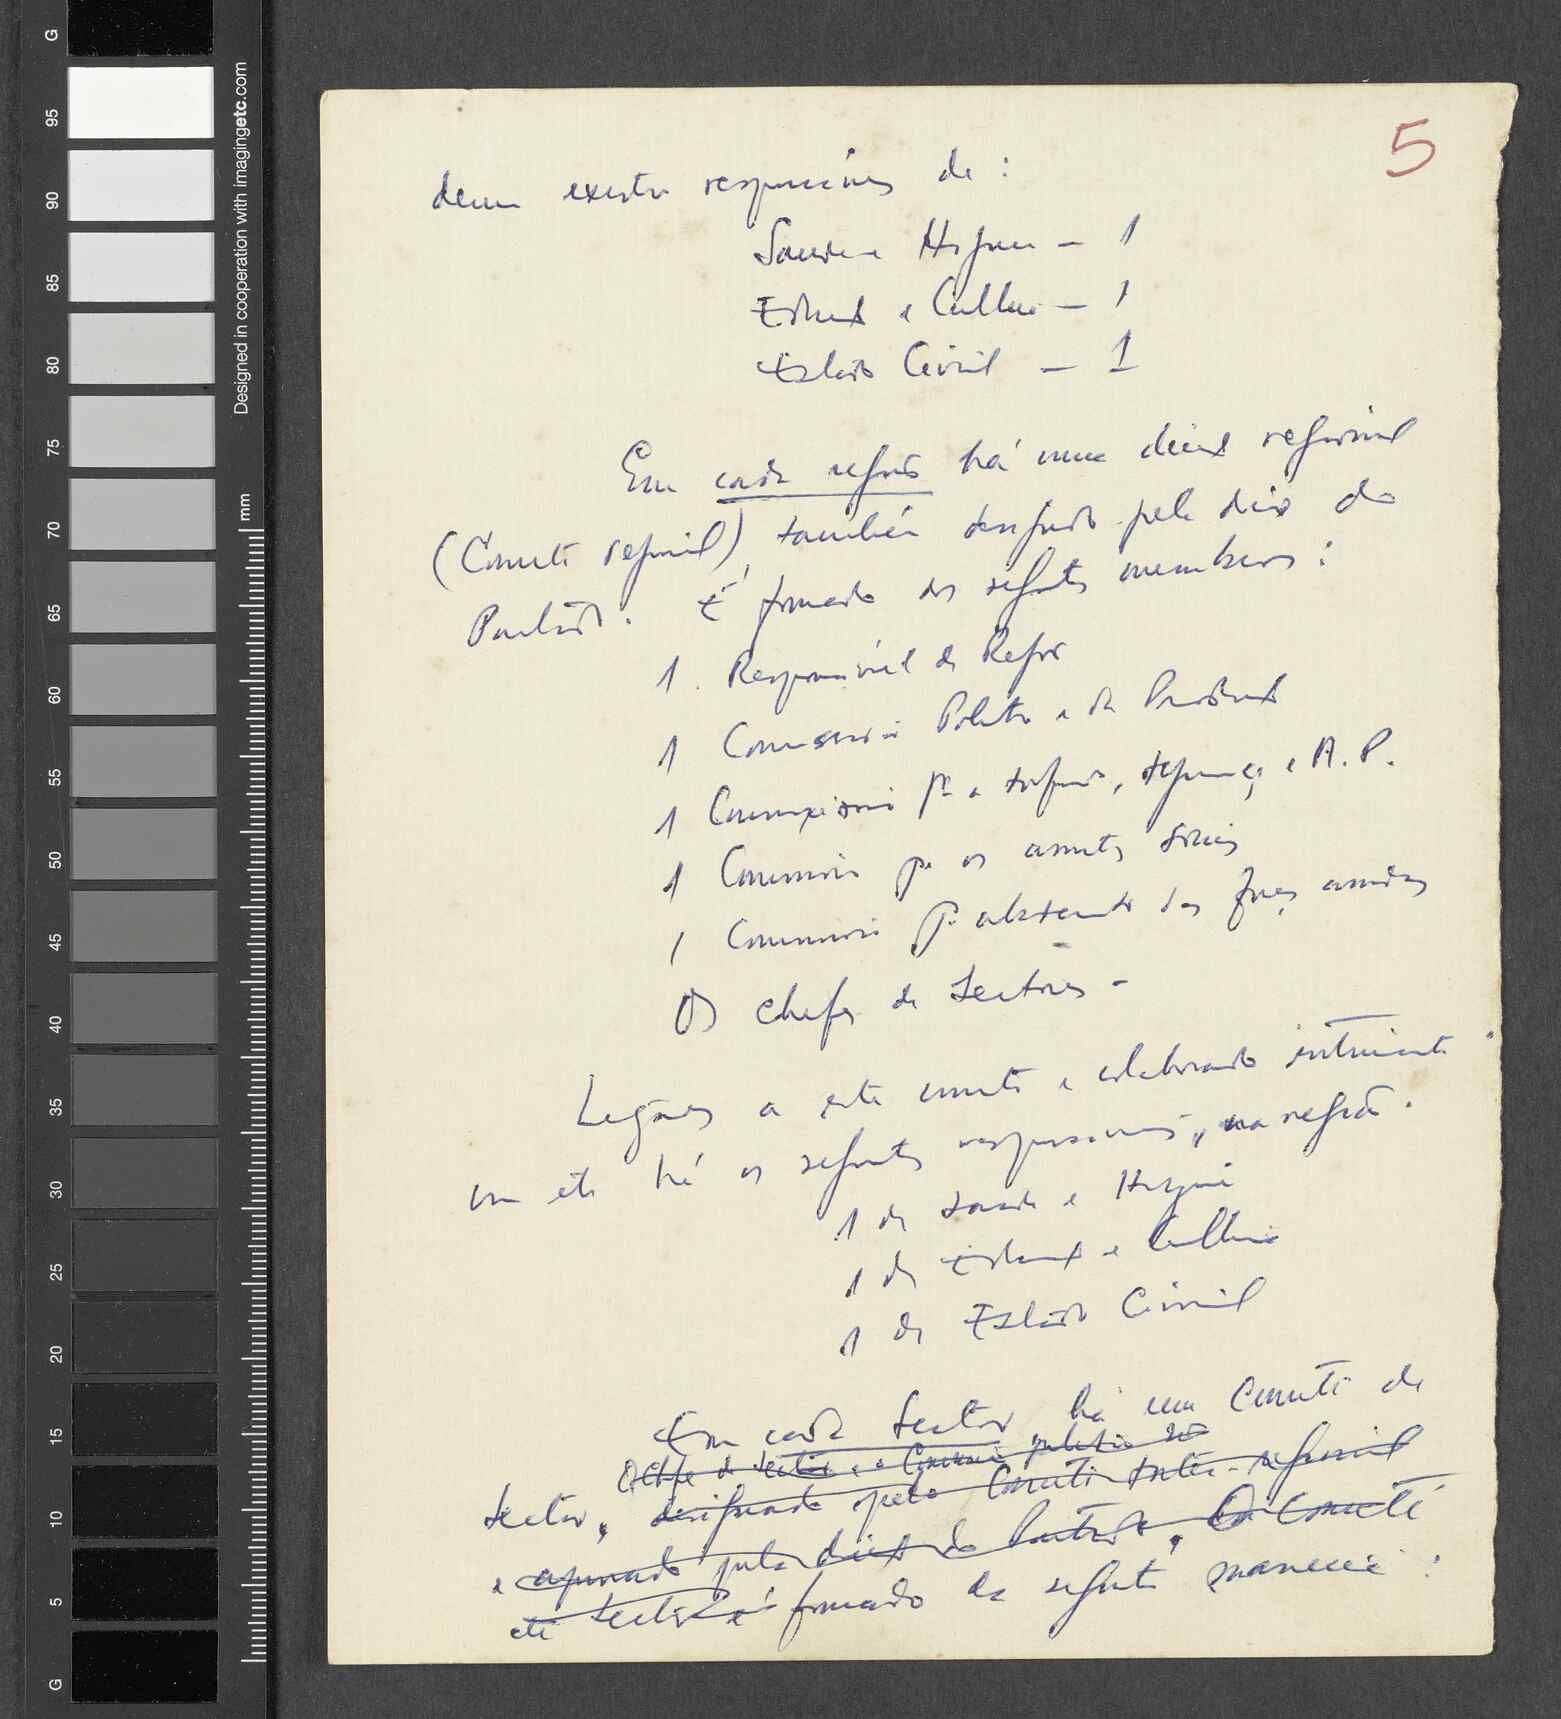 5
devem existir responsáveis de:
Saúde e Higiene — 1
Educação e Cultura — 1
Estado Civil — 1
Em cada região há uma direcção regional
(Comité regional), também designado pela direcção do
Partido. É formado dos seguintes membros:
1 Responsável da Região
1 Comissário Político e da Produção
1 Comissário pª a informação, segurança e M. P.
1 Comissário pª os assuntos sociais
1 Comissário pª abastecimento das forças armadas
Os chefes de Sectores -
Ligados a este comité e colaborando intimamente
com ele há os seguintes responsáveis, na região:
1 de Saúde e Higiene
1 de Educação e Cultura
1 de Estado Civil
Em cada Sector há um Comité de
O Chefe de Sector e o Comissário político são
Sector, designado pelo Comité Inter-regional
e aprovado pela direcção do Partido. O Comité
de Sector é formado da seguinte maneira:
G
95
90
85
80
75
70
65
60
55
50
45
40
35
30
25
20
15
10
5
G
Designed in cooperation with imagingetc.com
mm